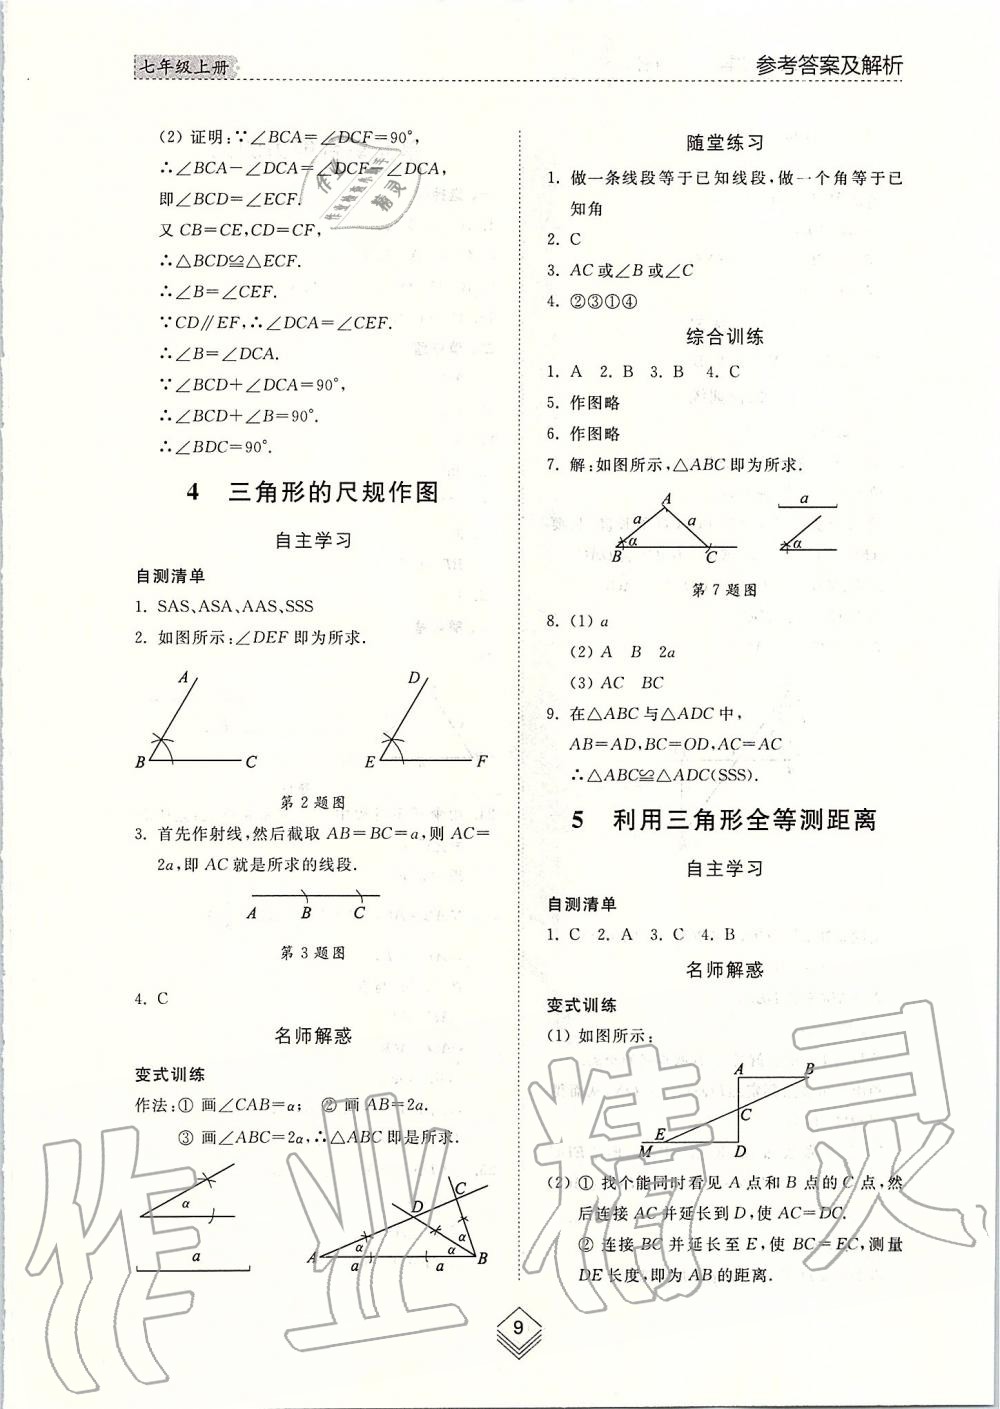 七年级上册
参考答案及解析
(2) 证明:∵∠BCA=∠DCF=90°,
∴∠BCA-∠DCA=∠DCF-∠DCA,
即∠BCD=∠ECF.
又 CB=CE,CD=CF,
∴△BCD≌△ECF.
∴∠B=∠CEF.
∵CD∥EF,∴∠DCA=∠CEF.
∴∠B=∠DCA.
∵∠BCD+∠DCA=90°,
∴∠BCD+∠B=90°.
∴∠BDC=90°.
4 三角形的尺规作图
自主学习
自测清单
1. SAS、ASA、AAS、SSS
2. 如图所示:∠DEF 即为所求.
A D
B C E F
第 2 题图
3. 首先作射线,然后截取 AB=BC=a,则 AC=
2a,即 AC 就是所求的线段.
A B C
第 3 题图
4. C
名师解惑
变式训练
作法:① 画∠CAB=α; ② 画 AB=2a.
③ 画∠ABC=2α,∴△ABC 即是所求.
α
a
C
D
A α α α B
a a
随堂练习
1. 做一条线段等于已知线段,做一个角等于已
知角
2. C
3. AC 或∠B 或∠C
4. ②③①④
综合训练
1. A 2. B 3. B 4. C
5. 作图略
6. 作图略
7. 解:如图所示,△ABC 即为所求.
A a
a a
α α
B C
第 7 题图
8. (1) a
(2) A B 2a
(3) AC BC
9. 在△ABC 与△ADC 中,
AB=AD,BC=OD,AC=AC
∴△ABC≌△ADC(SSS).
5 利用三角形全等测距离
自主学习
自测清单
1. C 2. A 3. C 4. B
名师解惑
变式训练
(1) 如图所示:
A B
C
E
M D
(2) ① 找个能同时看见 A 点和 B 点的 C 点,然
后连接 AC 并延长到 D,使 AC=DC.
② 连接 BC 并延长至 E,使 BC=EC,测量
DE 长度,即为 AB 的距离.
9
作业精灵